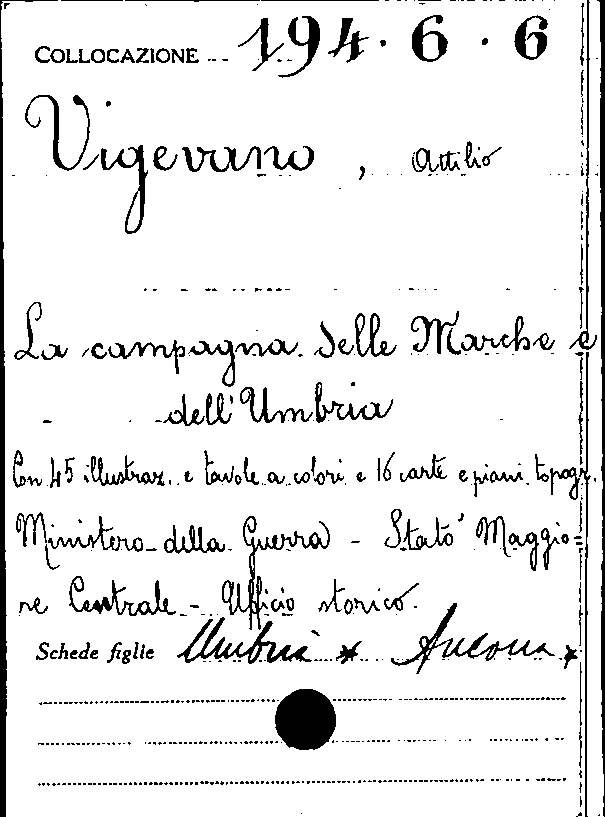 COLLOCAZIONE 194.6.6
Vigevano, Attilio
La campagna delle Marche e
dell'Umbria
Con 45 illustraz. e tavole a colori e 16 carte e piani topogr.
Ministero della Guerra - Stato Maggio=
re Centrale - Ufficio storico.
Schede figlie Umbria * Ancona *